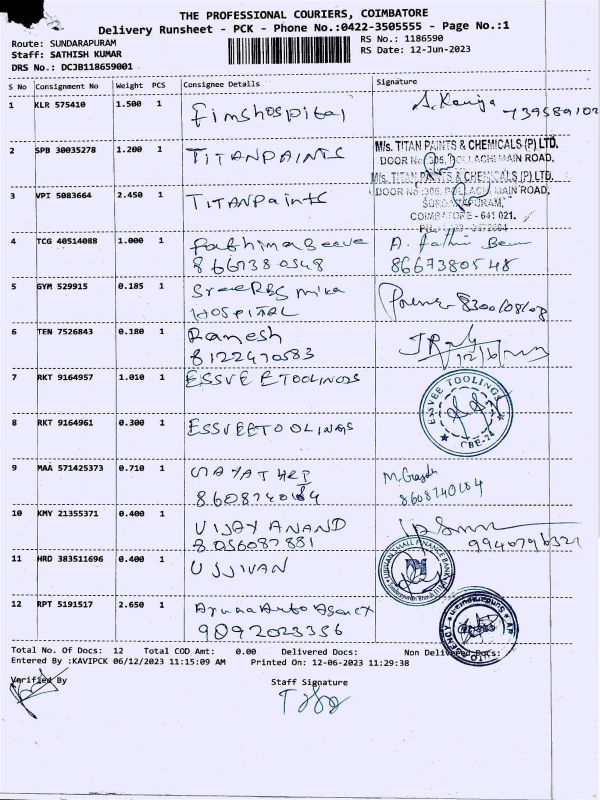 THE PROFESSIONAL COURIERS, COIMBATORE
Delivery Runsheet - PCK - Phone No.:0422-3505555 - Page No.:1
Route: SUNDARAPURAM
RS No.: 1186590
Staff: SATHISH KUMAR
RS Date: 12-Jun-2023
DRS No.: DCJB118659001
S No Consignment No Weight PCS Consignee Details Signature
1 KLR 575410 1.500 1 fimshospital
2 SPB 30035278 1.200 1 TITANPAINTS
M/s. TITAN PAINTS & CHEMICALS (P) LTD.
DOOR No :305, POLLACHI MAIN ROAD,
M/s. TITAN PAINTS & CHEMICALS (P) LTD.
3 VPI 5083664 2.450 1 TITANPaints
DOOR No :305, POLLACHI MAIN ROAD,
COIMBATORE - 641 021.
4 TCG 40514088 1.000 1 fathimabeeve
8667380548 8667380548
5 GYM 529915 0.185 1
HOSPITAL
6 TEN 7526843 0.180 1 Ramesh
8122470583
7 RKT 9164957 1.010 1 ESSVEETOOLINGS
ESSVEE TOOLINGS
CBE-24
8 RKT 9164961 0.300 1 ESSVEETOOLINGS
9 MAA 571425373 0.710 1
8608740184 8608740184
10 KMY 21355371 0.400 1 VIJAY ANAND
8056087881 9940796321
11 HRD 383511696 0.400 1 UJJIVAN
UJJIVAN SMALL FINANCE BANK
12 RPT 5191517 2.650 1
9092023356
Total No. Of Docs: 12 Total COD Amt: 0.00 Delivered Docs: Non Delivered Docs:
Entered By :KAVIPCK 06/12/2023 11:15:09 AM Printed On: 12-06-2023 11:29:38
Verified By Staff Signature